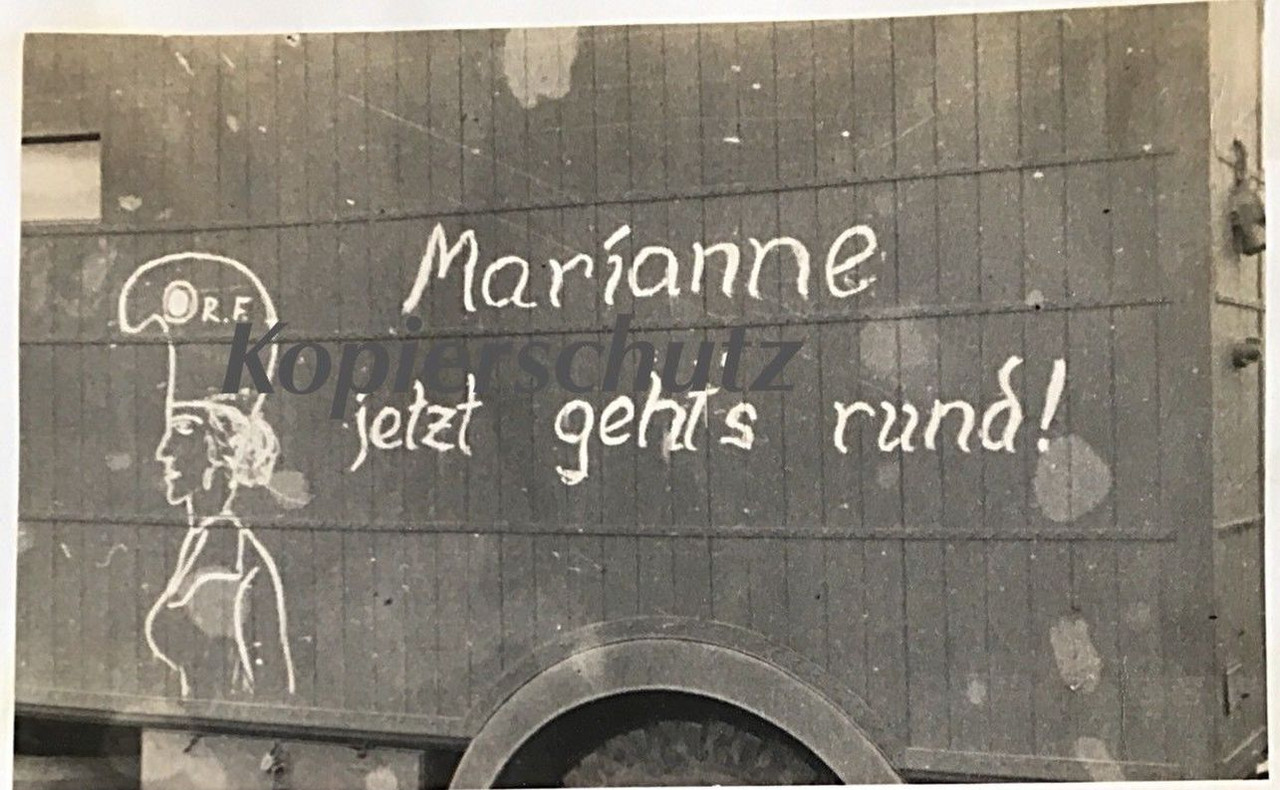 Marianne
R.F.
Kopierschutz
jetzt geht's rund!